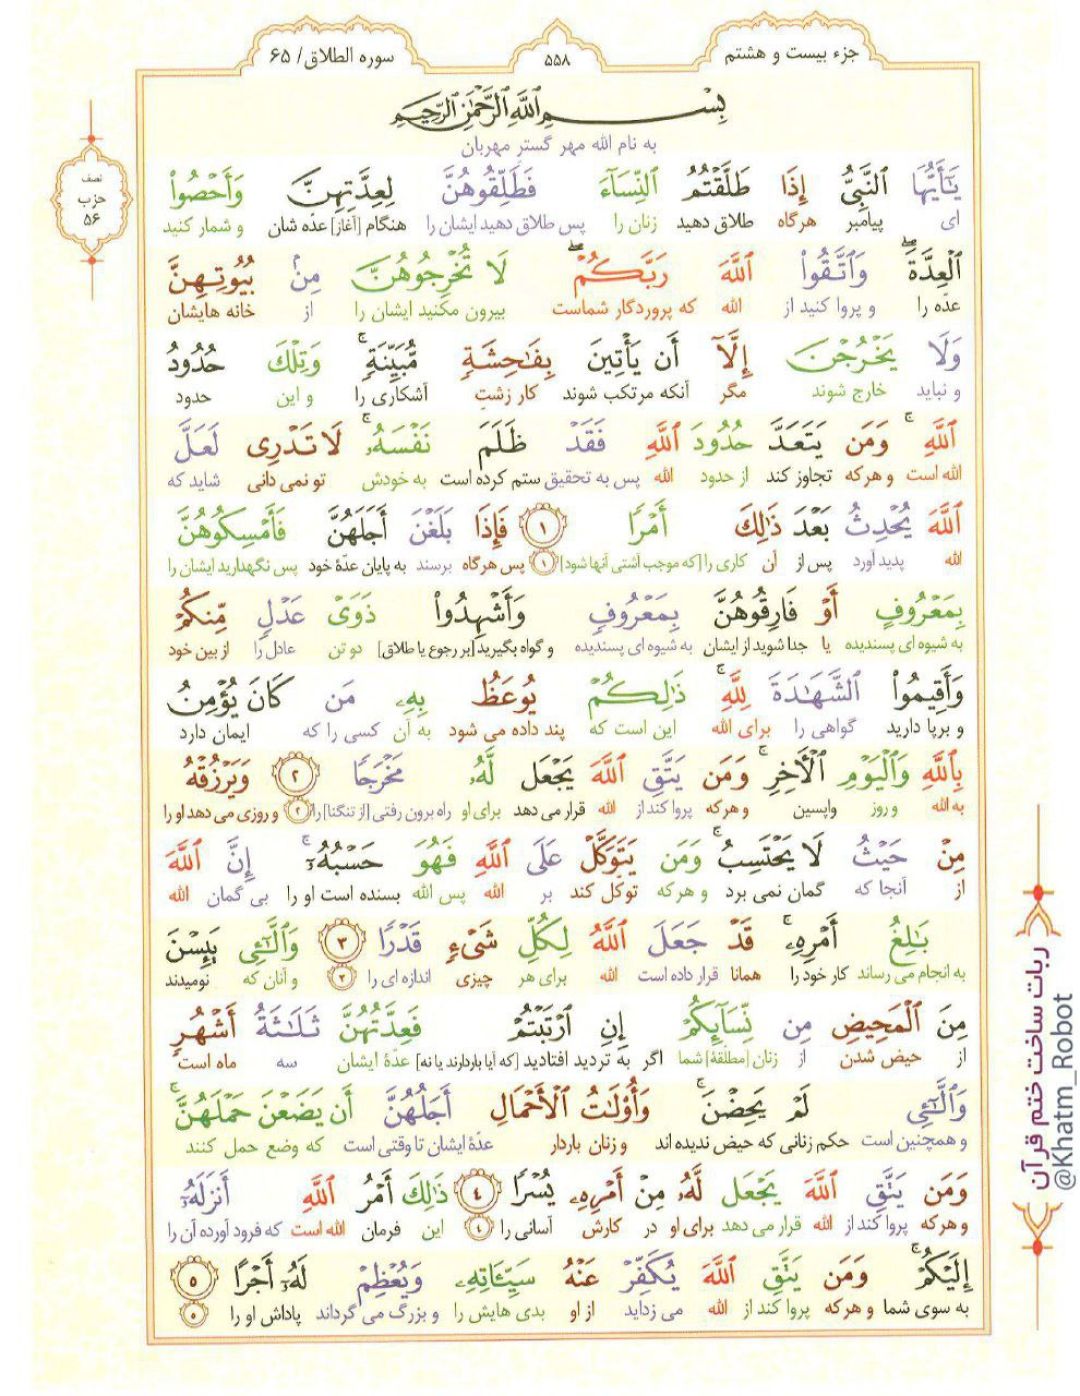 جزء بیست و هشتم
۵۵۸
سوره الطلاق/ ۶۵
بِسْمِ اللَّهِ الرَّحْمَٰنِ الرَّحِيمِ
به نام الله مهر گستر مهربان
نصف
حزب
۵۶
يَٰٓأَيُّهَا ٱلنَّبِيُّ إِذَا طَلَّقْتُمُ ٱلنِّسَآءَ فَطَلِّقُوهُنَّ لِعِدَّتِهِنَّ وَأَحْصُوا۟
ای پیامبر هرگاه طلاق دهید زنان را پس طلاق دهید ایشان را هنگام [آغاز] عدّه شان و شمار کنید
ٱلْعِدَّةَ ۖ وَٱتَّقُوا۟ ٱللَّهَ رَبَّكُمْ ۖ لَا تُخْرِجُوهُنَّ مِنۢ بُيُوتِهِنَّ
عدّه را و پروا کنید از الله که پروردگار شماست بیرون مکنید ایشان را از خانه هایشان
وَلَا يَخْرُجْنَ إِلَّآ أَن يَأْتِينَ بِفَٰحِشَةٍ مُّبَيِّنَةٍ ۚ وَتِلْكَ حُدُودُ
و نباید خارج شوند مگر آنکه مرتکب شوند کار زشتِ آشکاری را و این حدود
ٱللَّهِ ۚ وَمَن يَتَعَدَّ حُدُودَ ٱللَّهِ فَقَدْ ظَلَمَ نَفْسَهُۥ ۚ لَا تَدْرِى لَعَلَّ
الله است و هرکه تجاوز کند از حدود الله پس به تحقیق ستم کرده است به خودش تو نمی دانی شاید که
ٱللَّهَ يُحْدِثُ بَعْدَ ذَٰلِكَ أَمْرًا ۱ فَإِذَا بَلَغْنَ أَجَلَهُنَّ فَأَمْسِكُوهُنَّ
الله پدید آورد پس از آن کاری را [که موجب آشتی آنها شود] ۱ پس هرگاه برسند به پایان عدّهٔ خود پس نگهدارید ایشان را
بِمَعْرُوفٍ أَوْ فَارِقُوهُنَّ بِمَعْرُوفٍ وَأَشْهِدُوا۟ ذَوَىْ عَدْلٍ مِّنكُمْ
به شیوه ای پسندیده یا جدا شوید از ایشان به شیوه ای پسندیده و گواه بگیرید [بر رجوع یا طلاق] دو تن عادل را از بین خود
وَأَقِيمُوا۟ الشَّهَٰدَةَ لِلَّهِ ۚ ذَٰلِكُمْ يُوعَظُ بِهِۦ مَن كَانَ يُؤْمِنُ
و برپا دارید گواهی را برای الله این است که پند داده می شود به آن کسی را که ایمان دارد
بِٱللَّهِ وَٱلْيَوْمِ ٱلْءَاخِرِ ۚ وَمَن يَتَّقِ ٱللَّهَ يَجْعَل لَّهُۥ مَخْرَجًا ۲ وَيَرْزُقْهُ
به الله و روز واپسین و هرکه پروا کند از الله قرار می دهد برای او راه برون رفتی [از تنگنا] را ۲ و روزی می دهد او را
مِنْ حَيْثُ لَا يَحْتَسِبُ ۚ وَمَن يَتَوَكَّلْ عَلَى ٱللَّهِ فَهُوَ حَسْبُهُۥٓ ۚ إِنَّ ٱللَّهَ
از آنجا که گمان نمی برد و هرکه توکل کند بر الله پس الله بسنده است او را بی گمان الله
بَٰلِغُ أَمْرِهِۦ ۚ قَدْ جَعَلَ ٱللَّهُ لِكُلِّ شَىْءٍ قَدْرًا ۳ وَٱلَّٰٓـِٔى يَئِسْنَ
به انجام می رساند کار خود را همانا قرار داده است الله برای هر چیزی اندازه ای را ۳ و آنان که نومیدند
مِنَ ٱلْمَحِيضِ مِن نِّسَآئِكُمْ إِنِ ٱرْتَبْتُمْ فَعِدَّتُهُنَّ ثَلَٰثَةُ أَشْهُرٍ
از حیض شدن از زنان [مطلقهٔ] شما اگر به تردید افتادید [که آیا باردارند یا نه] عدّهٔ ایشان سه ماه است
وَٱلَّٰٓـِٔى لَمْ يَحِضْنَ ۚ وَأُو۟لَٰتُ ٱلْأَحْمَالِ أَجَلُهُنَّ أَن يَضَعْنَ حَمْلَهُنَّ ۚ
و همچنین است حکم زنانی که حیض ندیده اند و زنان باردار عدّهٔ ایشان تا وقتی است که وضع حمل کنند
وَمَن يَتَّقِ ٱللَّهَ يَجْعَل لَّهُۥ مِنْ أَمْرِهِۦ يُسْرًا ۴ ذَٰلِكَ أَمْرُ ٱللَّهِ أَنزَلَهُۥٓ
و هرکه پروا کند از الله قرار می دهد برای او در کارش آسانی را ۴ این فرمان الله است که فرود آورده آن را
إِلَيْكُمْ ۚ وَمَن يَتَّقِ ٱللَّهَ يُكَفِّرْ عَنْهُ سَيِّـَٔاتِهِۦ وَيُعْظِمْ لَهُۥٓ أَجْرًا ۵
به سوی شما و هرکه پروا کند از الله می زداید از او بدی هایش را و بزرگ می گرداند پاداش او را ۵
ربات ساخت ختم قرآن
@Khatm_Robot